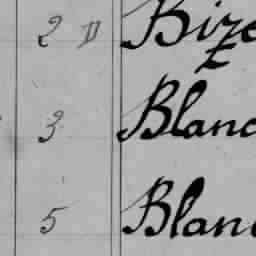 2 D Bize
3 Blanc
5 Blanc